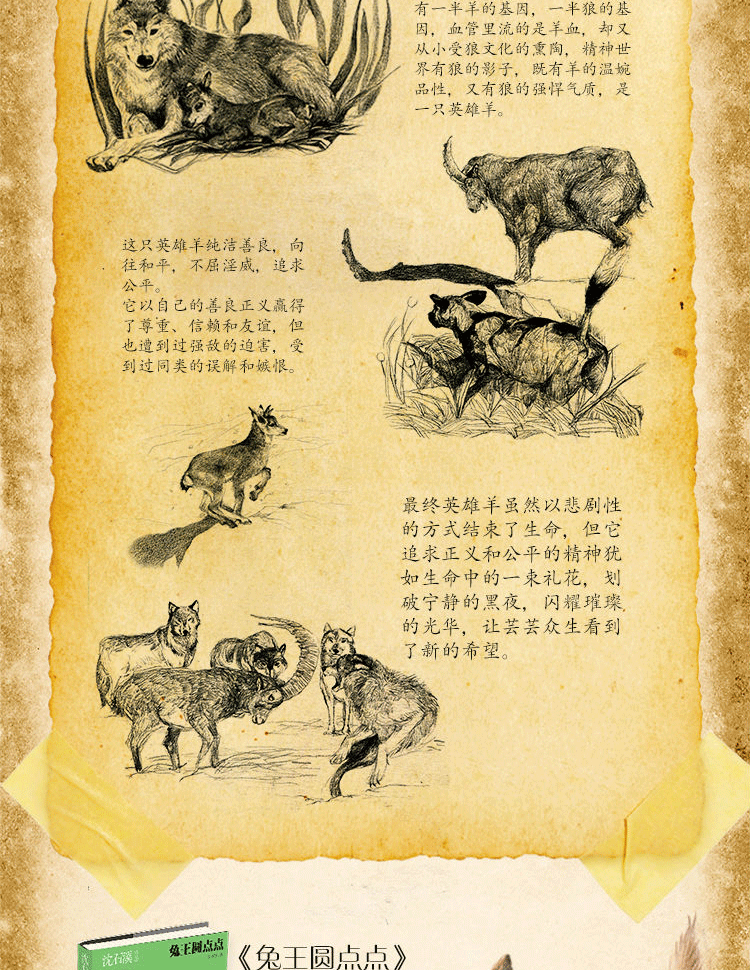 有一半羊的基因，一半狼的基
因，血管里流的是羊血，却又
从小受狼文化的熏陶，精神世
界有狼的影子，既有羊的温婉
品性，又有狼的强悍气质，是
一只英雄羊。
这只英雄羊纯洁善良，向
往和平，不屈淫威，追求
公平。
它以自己的善良正义赢得
了尊重、信赖和友谊，但
也遭到过强敌的迫害，受
到过同类的误解和嫉恨。
最终英雄羊虽然以悲剧性
的方式结束了生命，但它
追求正义和公平的精神犹
如生命中的一束礼花，划
破宁静的黑夜，闪耀璀璨
的光华，让芸芸众生看到
了新的希望。
沈石溪
兔王圆点点
《兔王圆点点》